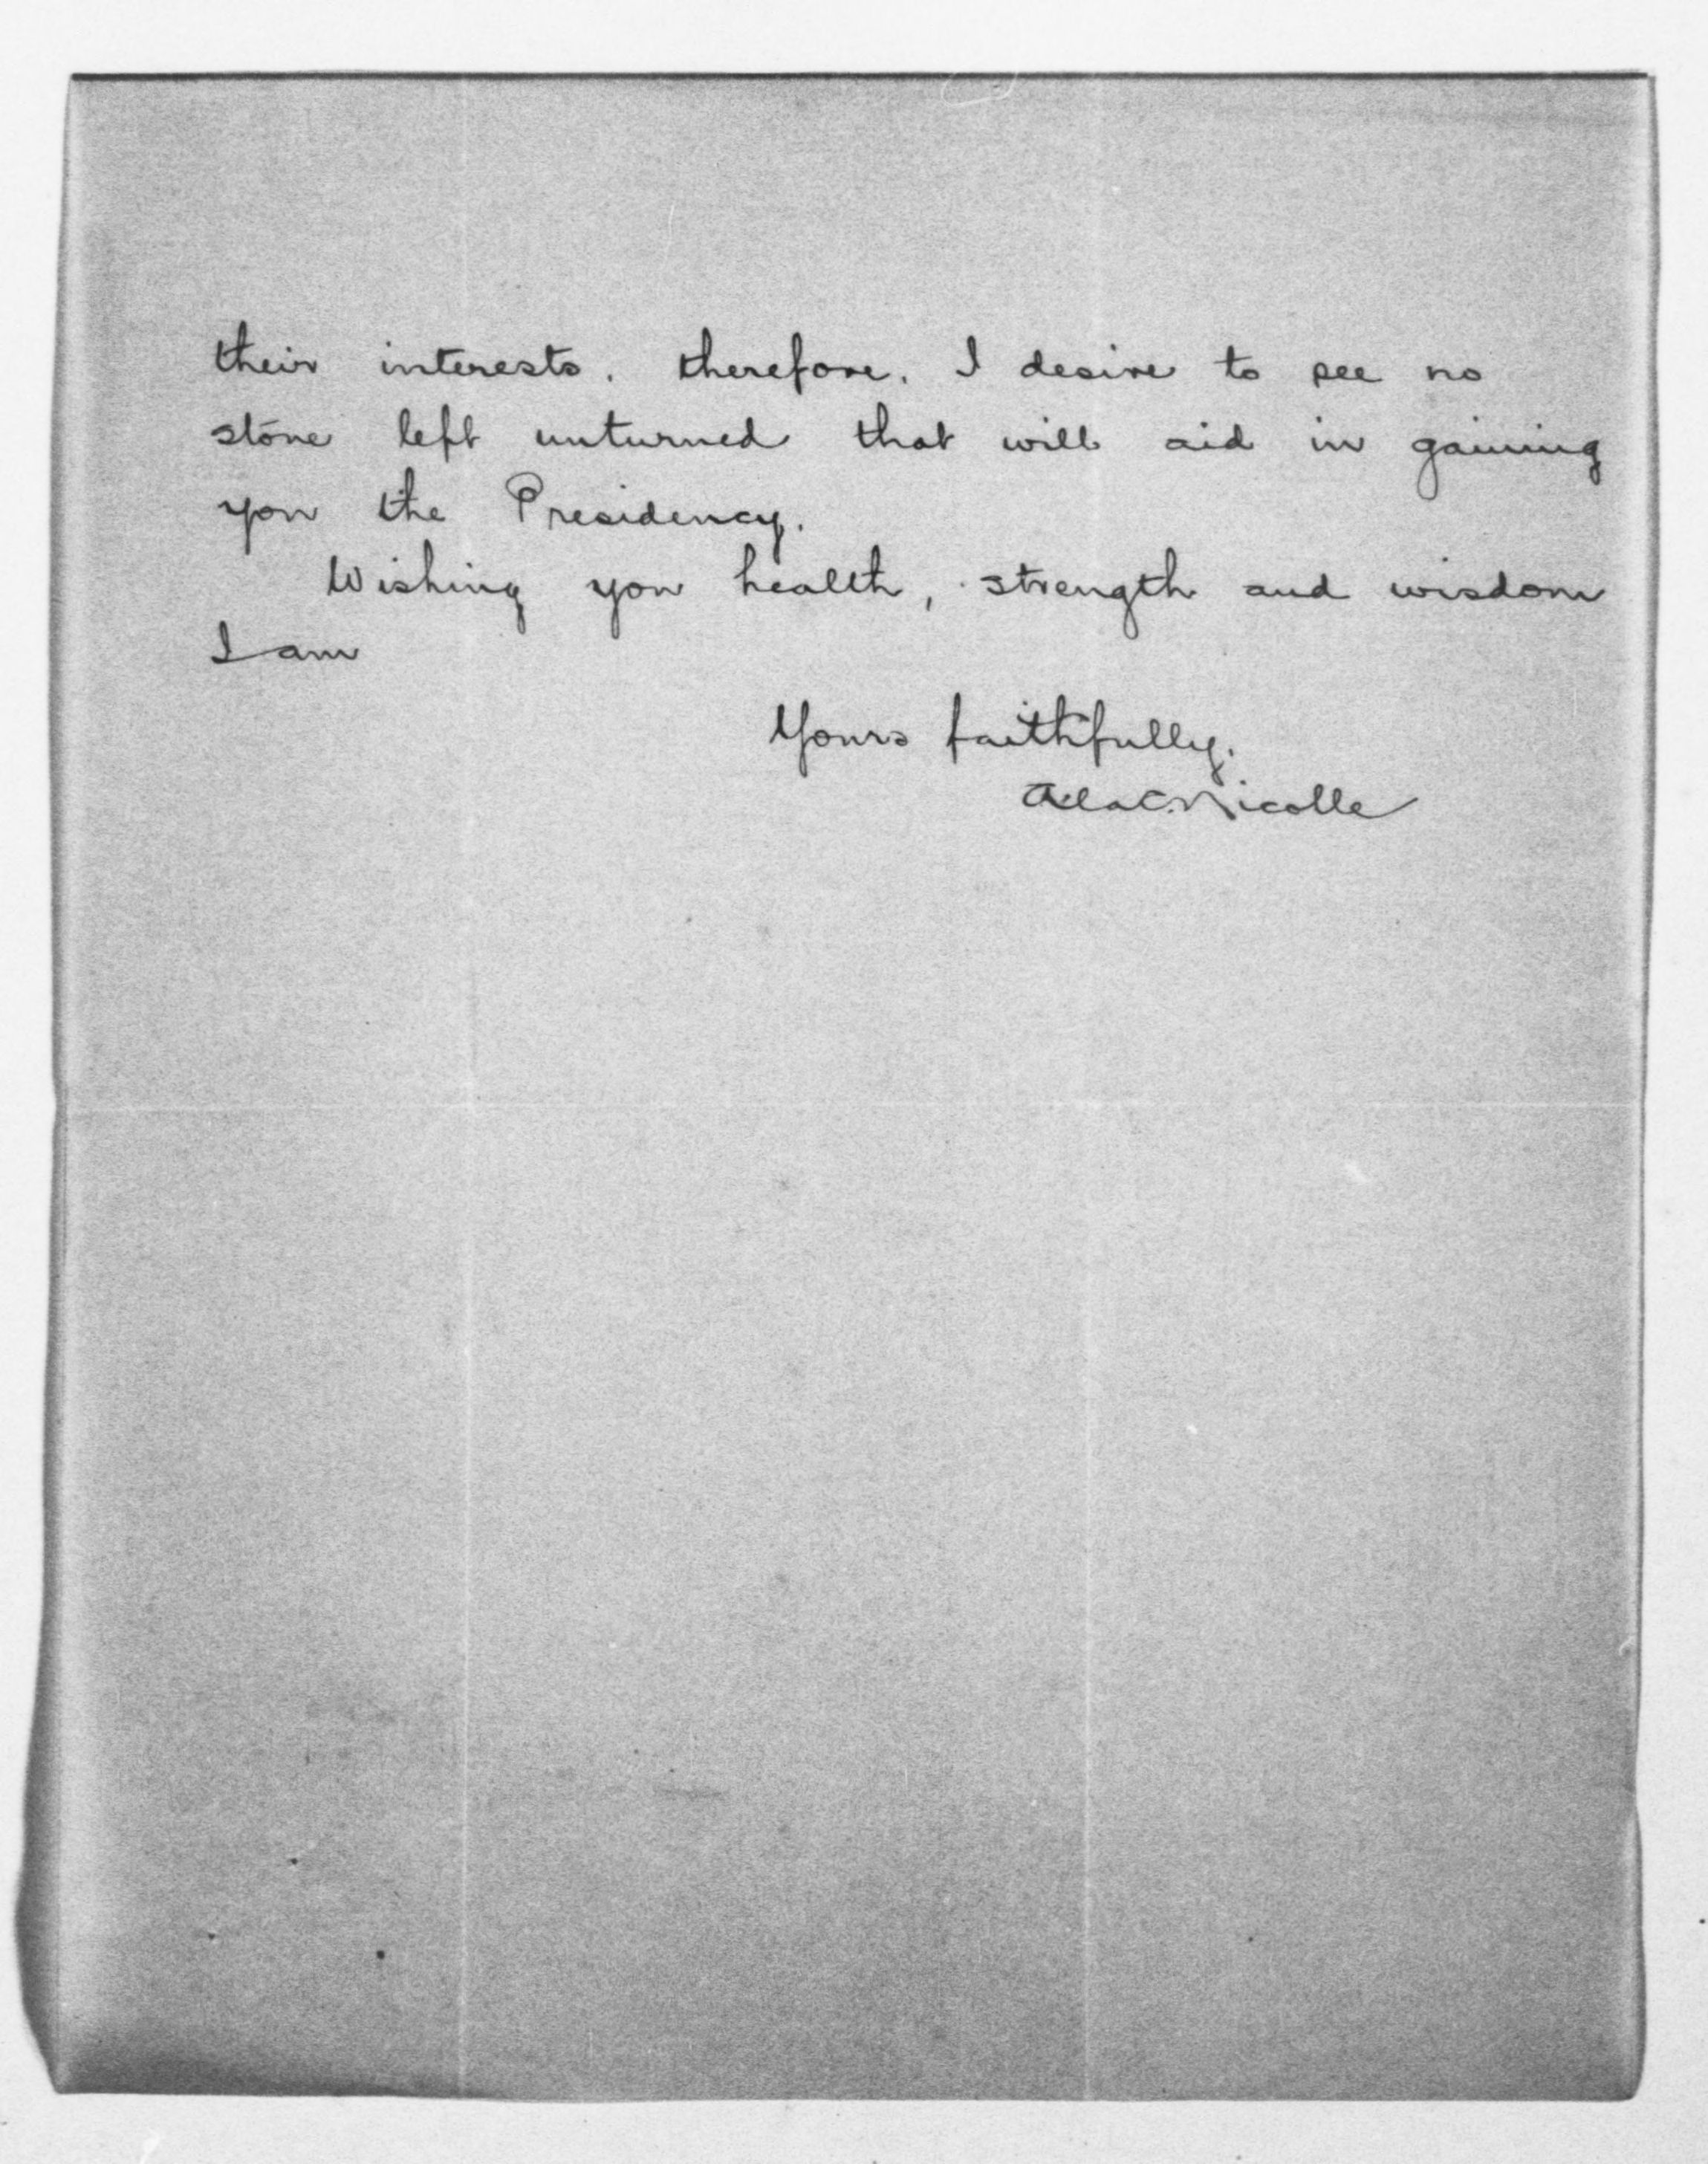 their interests. therefore. I desire to see no
stone left unturned that will aid in gaining
you the Presidency.
Wishing you health, strength and wisdom
I am
Yours faithfully.
C. Nicolle